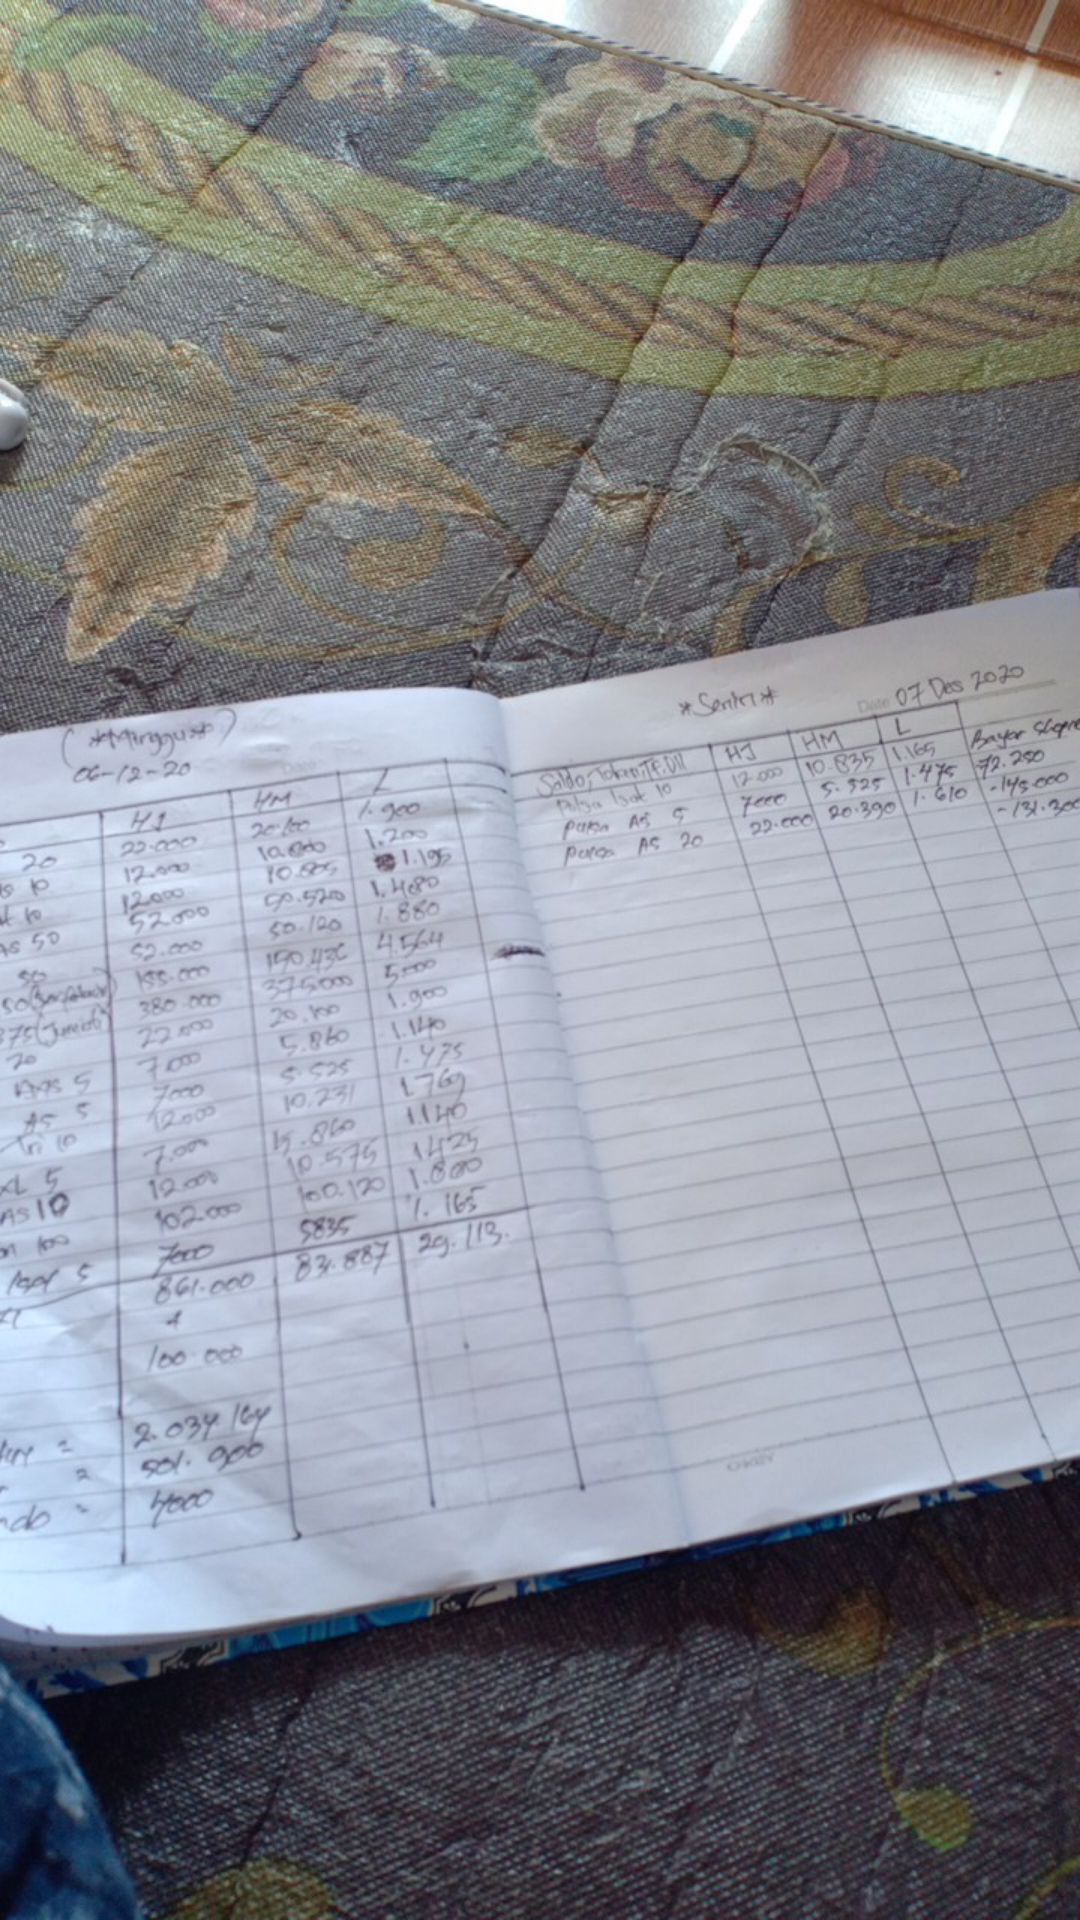 **Minggu**
06-12-20
HJ HM L
20 22.000 20.100 1.900
10 12.000 10.800 1.200
10 12.000 10.805 1.195
AS 50 52.000 50.520 1.480
50 52.000 50.120 1.880
50 155.000 150.436 4.564
375 380.000 375000 5.000
20 22.000 20.100 1.900
5 7.000 5.860 1.140
AS 5 7000 5.525 1.475
Tri 10 12.000 10.231 1.769
XL 5 7.000 5.860 1.140
AS 10 12.000 10.575 1425
100 102.000 100.120 1.880
5 7000 5835 1.165
861.000 831.887 29.113.
100.000
2.034.164
501.900
4000
*Senin*
Date 07 Des 2020
Saldo, Token, TF, Dll HJ HM L Bayar Shope
Pulsa Isat 10 12.000 10.835 1.165 72.250
Pulsa AS 5 7000 5.525 1.475 -145.000
Pulsa AS 20 22.000 20.390 1.610 -131.300
OKEY